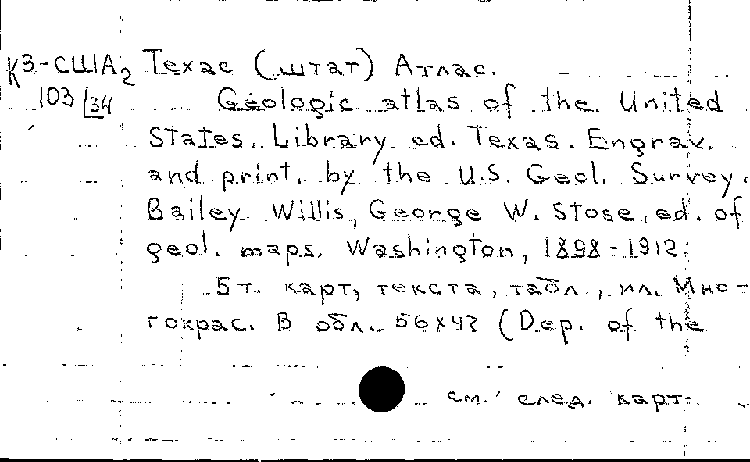 К3-США2 Техас (штат) Атлас.
103/34 Geologic atlas of the United
States. Library ed. Texas. Engrav.
and print. by the U.S. Geol. Survey.
Bailey Willis, George W. Stose, ed. of
geol. maps. Washington, 1898-1912.
5 т. карт, текста, табл., ил. Мно-
гокрас. В обл. 56x47 (Dep. of the
см. след. карт.